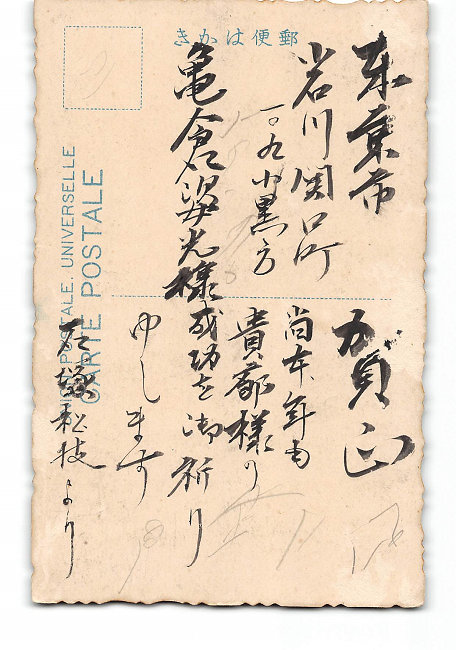 きかは便郵
東京市
小石川関口町
一〇九小黒方
亀倉姿光様
賀正
尚本年も
貴郎様の
成功を御祈り
申します
松枝より
UNION POSTALE UNIVERSELLE
CARTE POSTALE